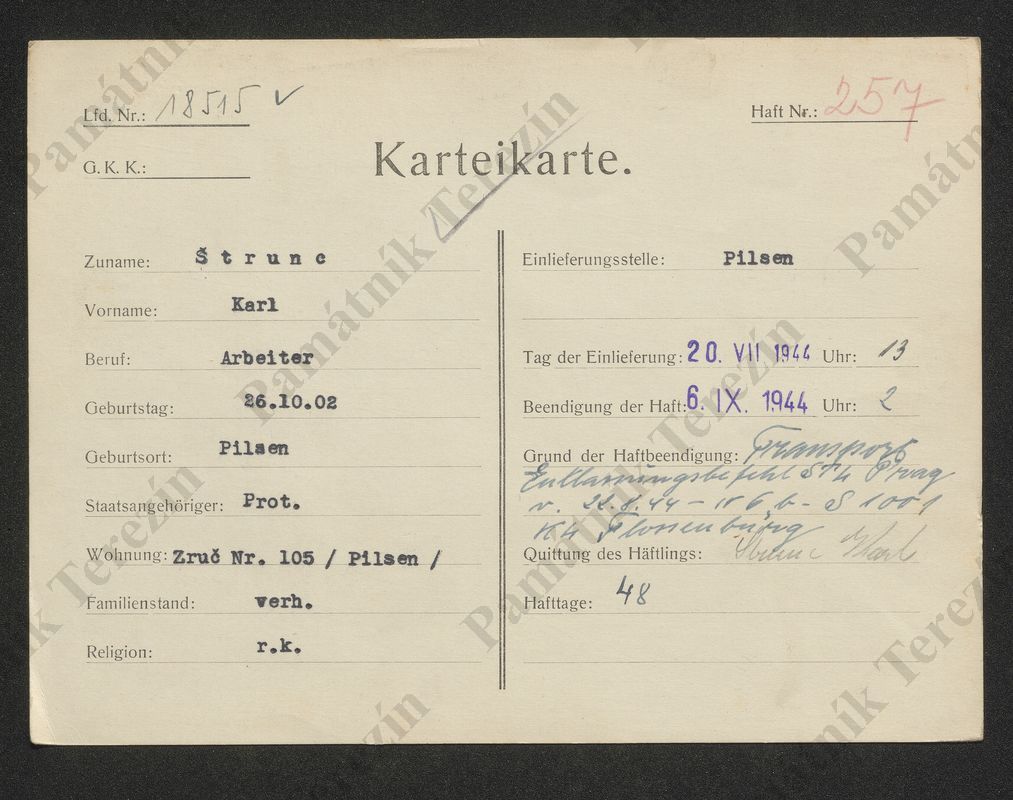 Lfd. Nr.: 18515 ✓
Haft Nr.: 257
G. K. K.:
Karteikarte.
Zuname: Štrunc
Vorname: Karl
Beruf: Arbeiter
Geburtstag: 26.10.02
Geburtsort: Pilsen
Staatsangehöriger: Prot.
Wohnung: Zruč Nr. 105 / Pilsen /
Familienstand: verh.
Religion: r.k.
Einlieferungsstelle: Pilsen
Tag der Einlieferung: 20. VII 1944 Uhr: 13
Beendigung der Haft: 6. IX. 1944 Uhr: 2
Grund der Haftbeendigung: Transport
Entlassungsbefehl Prag
v. 22.8.44 - 6 b - 1001
Flossenbürg
Quittung des Häftlings: Karl
Hafttage: 48
Památník Terezín